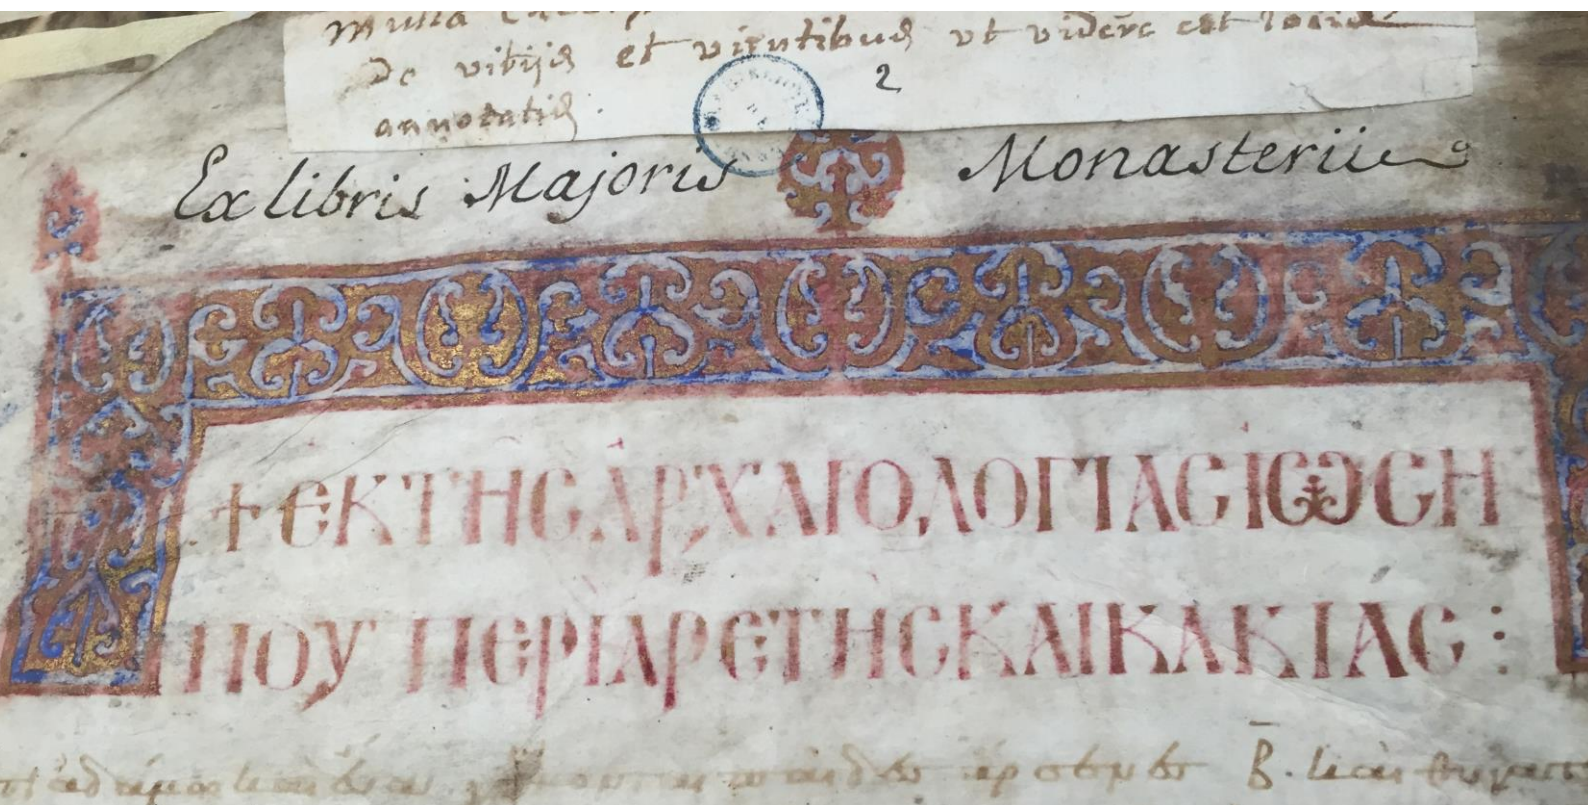 multa
de vitijs et virtutibus vt videre est locis
annotatis.
2
Ex libris Majoris Monasterii
+ ΕΚ ΤΗϹ ἈΡΧΑΙΟΛΟΓΊΑϹ ἸΩϹΗ
ΠΟΥ ΠΕΡΙ ἈΡΕΤΗϹ ΚΑΙ ΚΑΚΊΑϹ :
β̄. καὶ